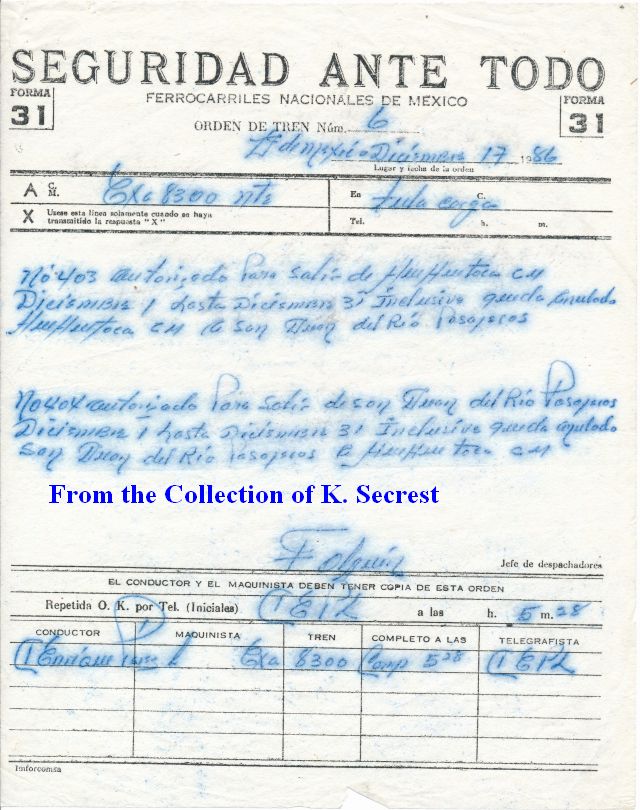 SEGURIDAD ANTE TODO
FORMA 31
FERROCARRILES NACIONALES DE MEXICO
FORMA 31
ORDEN DE TREN Núm. 6
Diciembre 17 1986
Lugar y fecha de la orden
A C. M. Exa 8300 nte En Tula carga C.
X Usese esta línea solamente cuando se haya transmitido la respuesta "X" Tel. h. m.
No 403 autorizado Para Salir de HueHuetoca CM
Diciembre 1 hasta Diciembre 31 Inclusive queda anulado
HueHuetoca CM a San Juan del Río Pasajeros
No 404 autorizado Para Salir de San Juan del Río Pasajeros
Diciembre 1 hasta Diciembre 31 Inclusive queda anulado
San Juan del Río Pasajeros a HueHuetoca CM
From the Collection of K. Secrest
Jefe de despachadores
EL CONDUCTOR Y EL MAQUINISTA DEBEN TENER COPIA DE ESTA ORDEN
Repetida O. K. por Tel. (Iniciales) a las h. 5 m. 28
CONDUCTOR MAQUINISTA TREN COMPLETO A LAS TELEGRAFISTA
Enrique Exa 8300 Comp 5 28
Imforcomsa